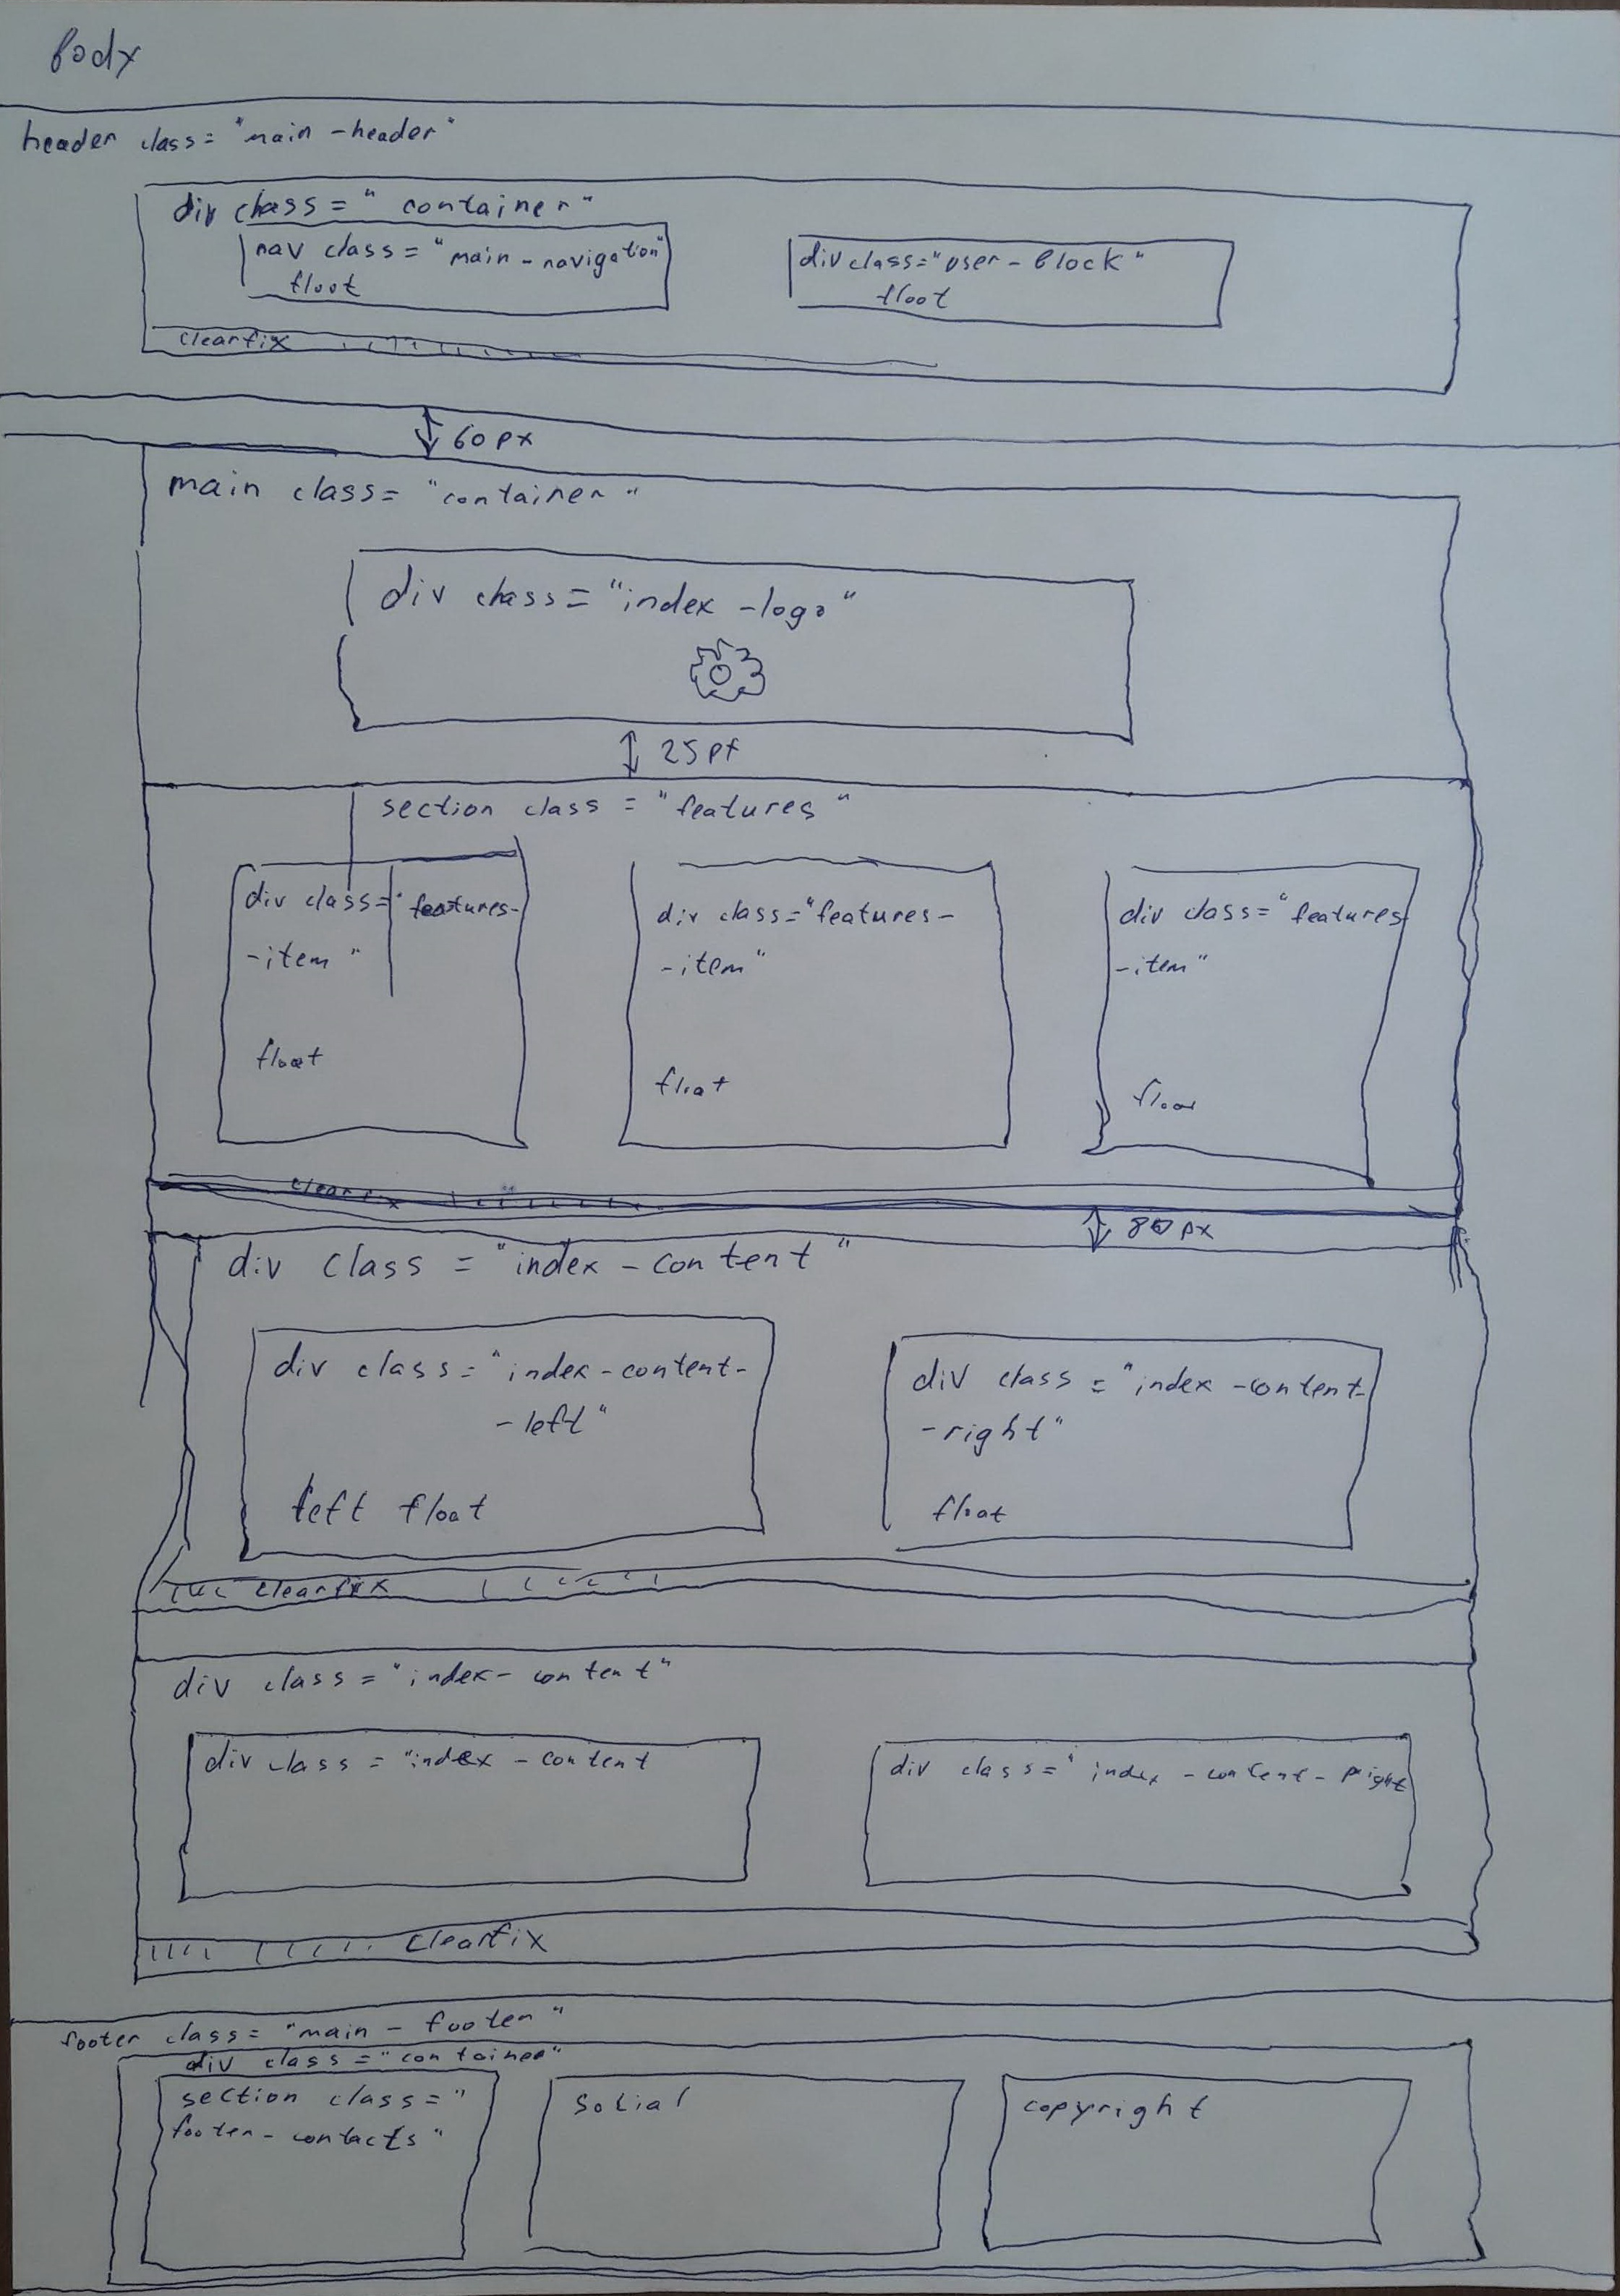 body
header class="main-header"
div class="container"
nav class="main-navigation"
float
div class="user-block"
float
clearfix
60px
main class="container"
div class="index-logo"
25px
section class="features"
div class="features-
-item"
float
div class="features-
-item"
float
div class="features-
-item"
float
clearfix
80px
div class="index-content"
div class="index-content-
-left"
left float
div class="index-content-
-right"
float
clearfix
div class="index-content"
div class="index-content
div class="index-content-right
clearfix
footer class="main-footer"
div class="container"
section class="
footer-contacts"
social
copyright